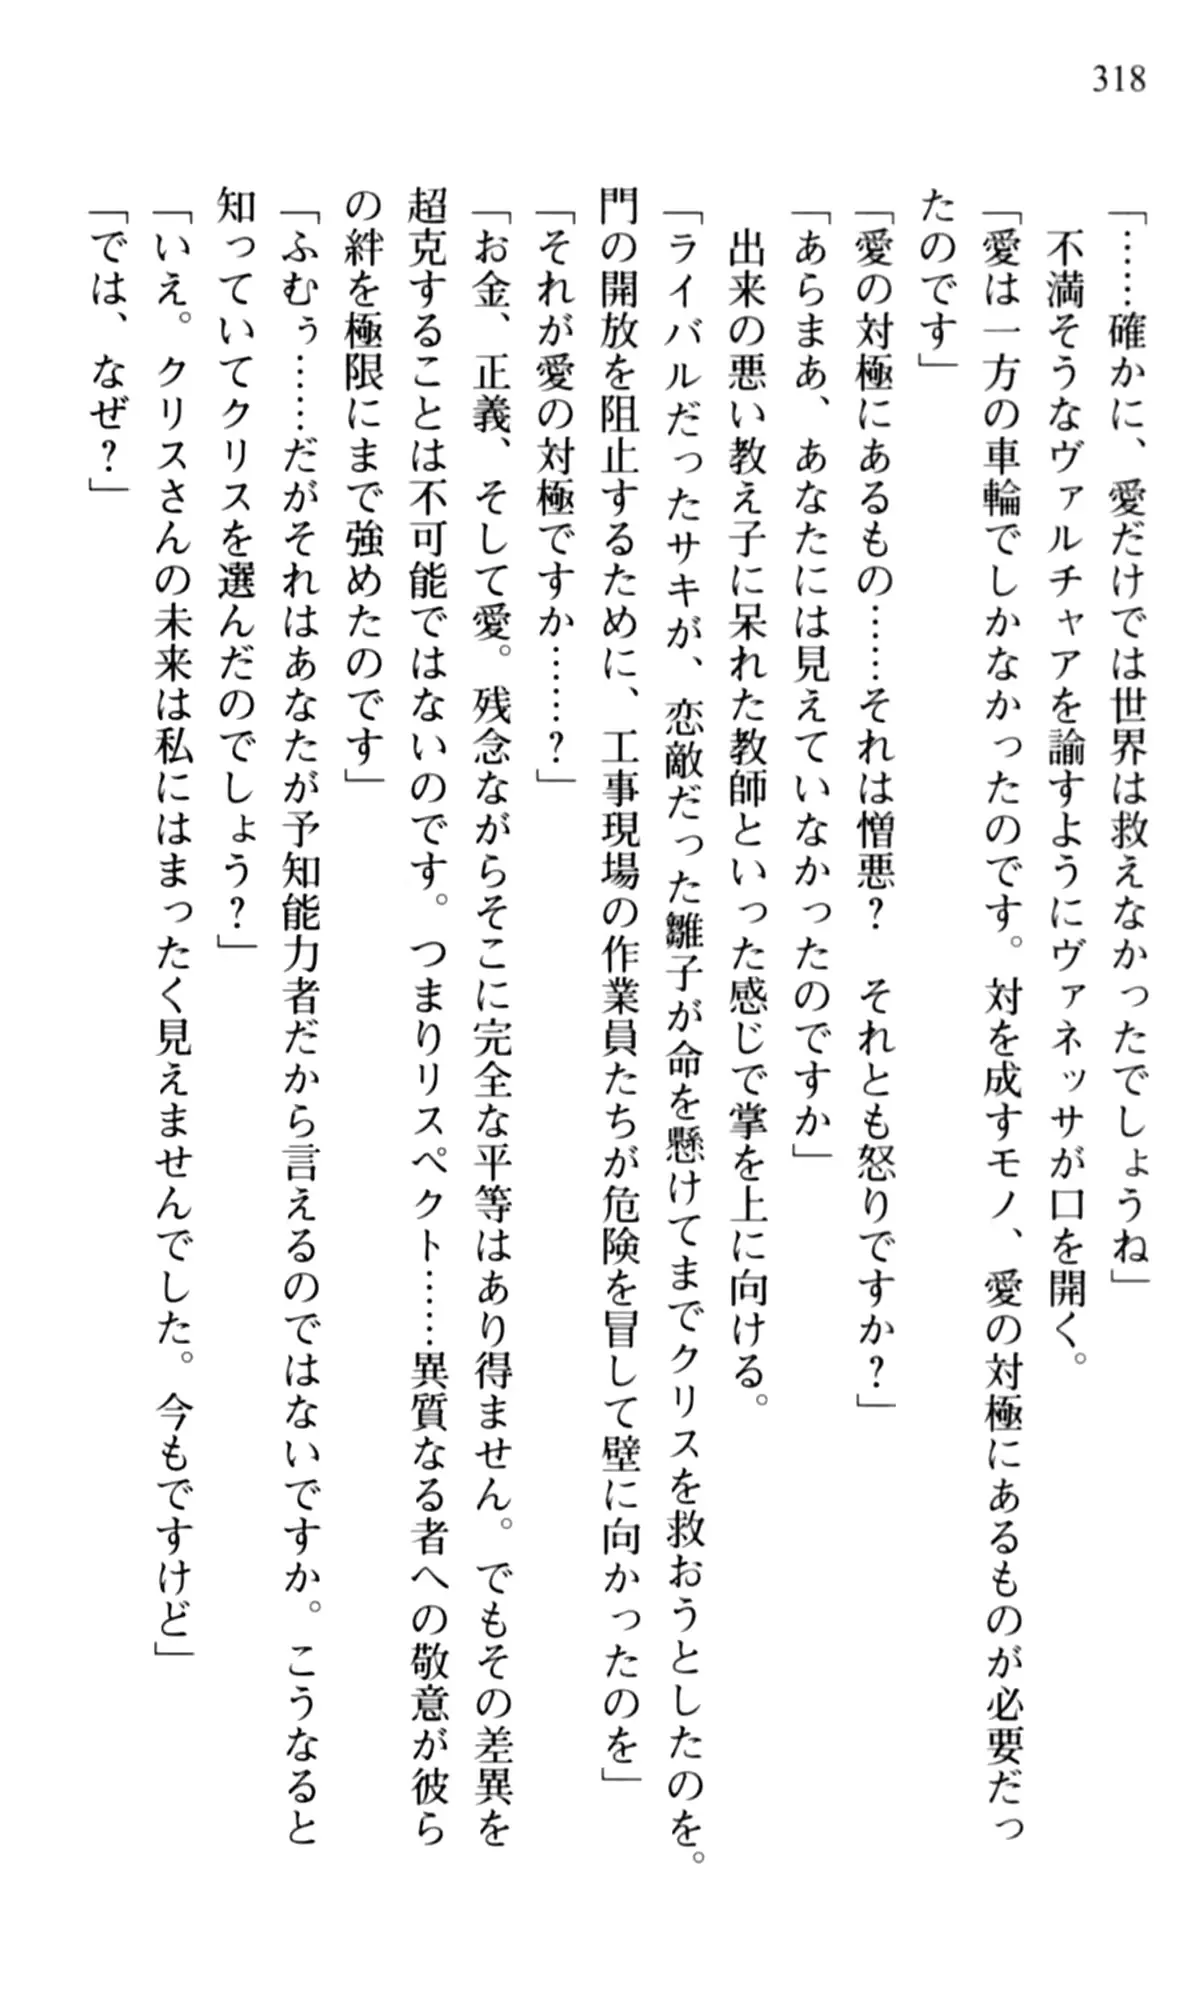 318
「……確かに、愛だけでは世界は救えなかったでしょうね」
　不満そうなヴァルチャアを諭すようにヴァネッサが口を開く。
「愛は一方の車輪でしかなかったのです。対を成すモノ、愛の対極にあるものが必要だっ
たのです」
「愛の対極にあるもの……それは憎悪？　それとも怒りですか？」
「あらまあ、あなたには見えていなかったのですか」
　出来の悪い教え子に呆れた教師といった感じで掌を上に向ける。
「ライバルだったサキが、恋敵だった雛子が命を懸けてまでクリスを救おうとしたのを。
門の開放を阻止するために、工事現場の作業員たちが危険を冒して壁に向かったのを」
「それが愛の対極ですか……？」
「お金、正義、そして愛。残念ながらそこに完全な平等はあり得ません。でもその差異を
超克することは不可能ではないのです。つまりリスペクト……異質なる者への敬意が彼ら
の絆を極限にまで強めたのです」
「ふむぅ……だがそれはあなたが予知能力者だから言えるのではないですか。こうなると
知っていてクリスを選んだのでしょう？」
「いえ。クリスさんの未来は私にはまったく見えませんでした。今もですけど」
「では、なぜ？」